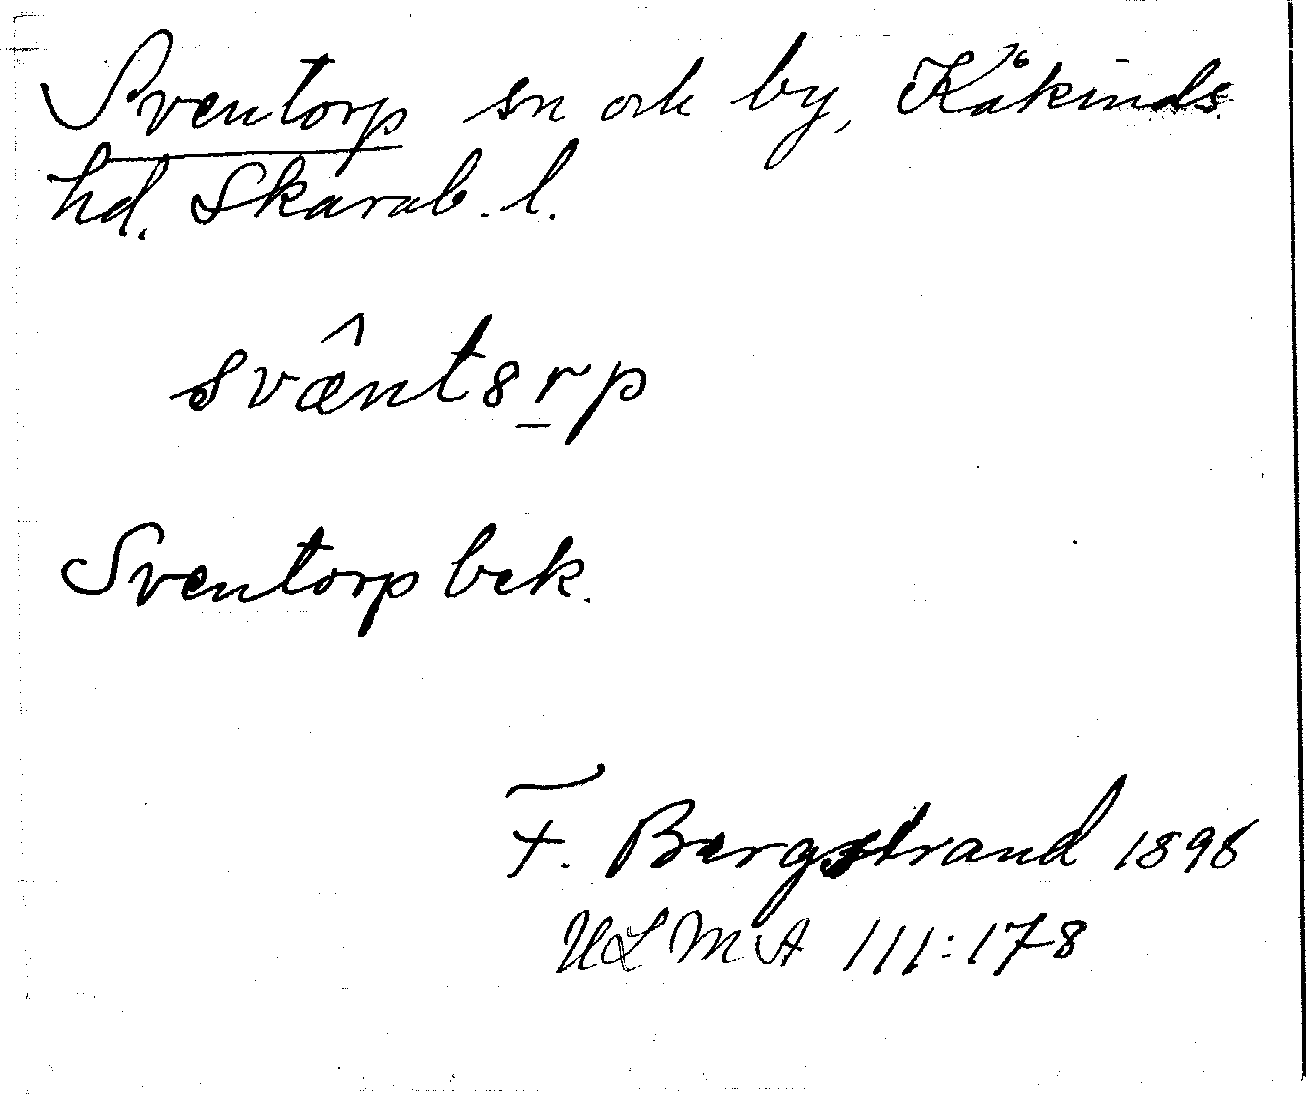 Sventorp sn och by, Kåkinds
hd. Skarab. l.
svæ̂nt8r̲p
Sventorp bek.
F. Bergstrand 1896
ULMA 111:178